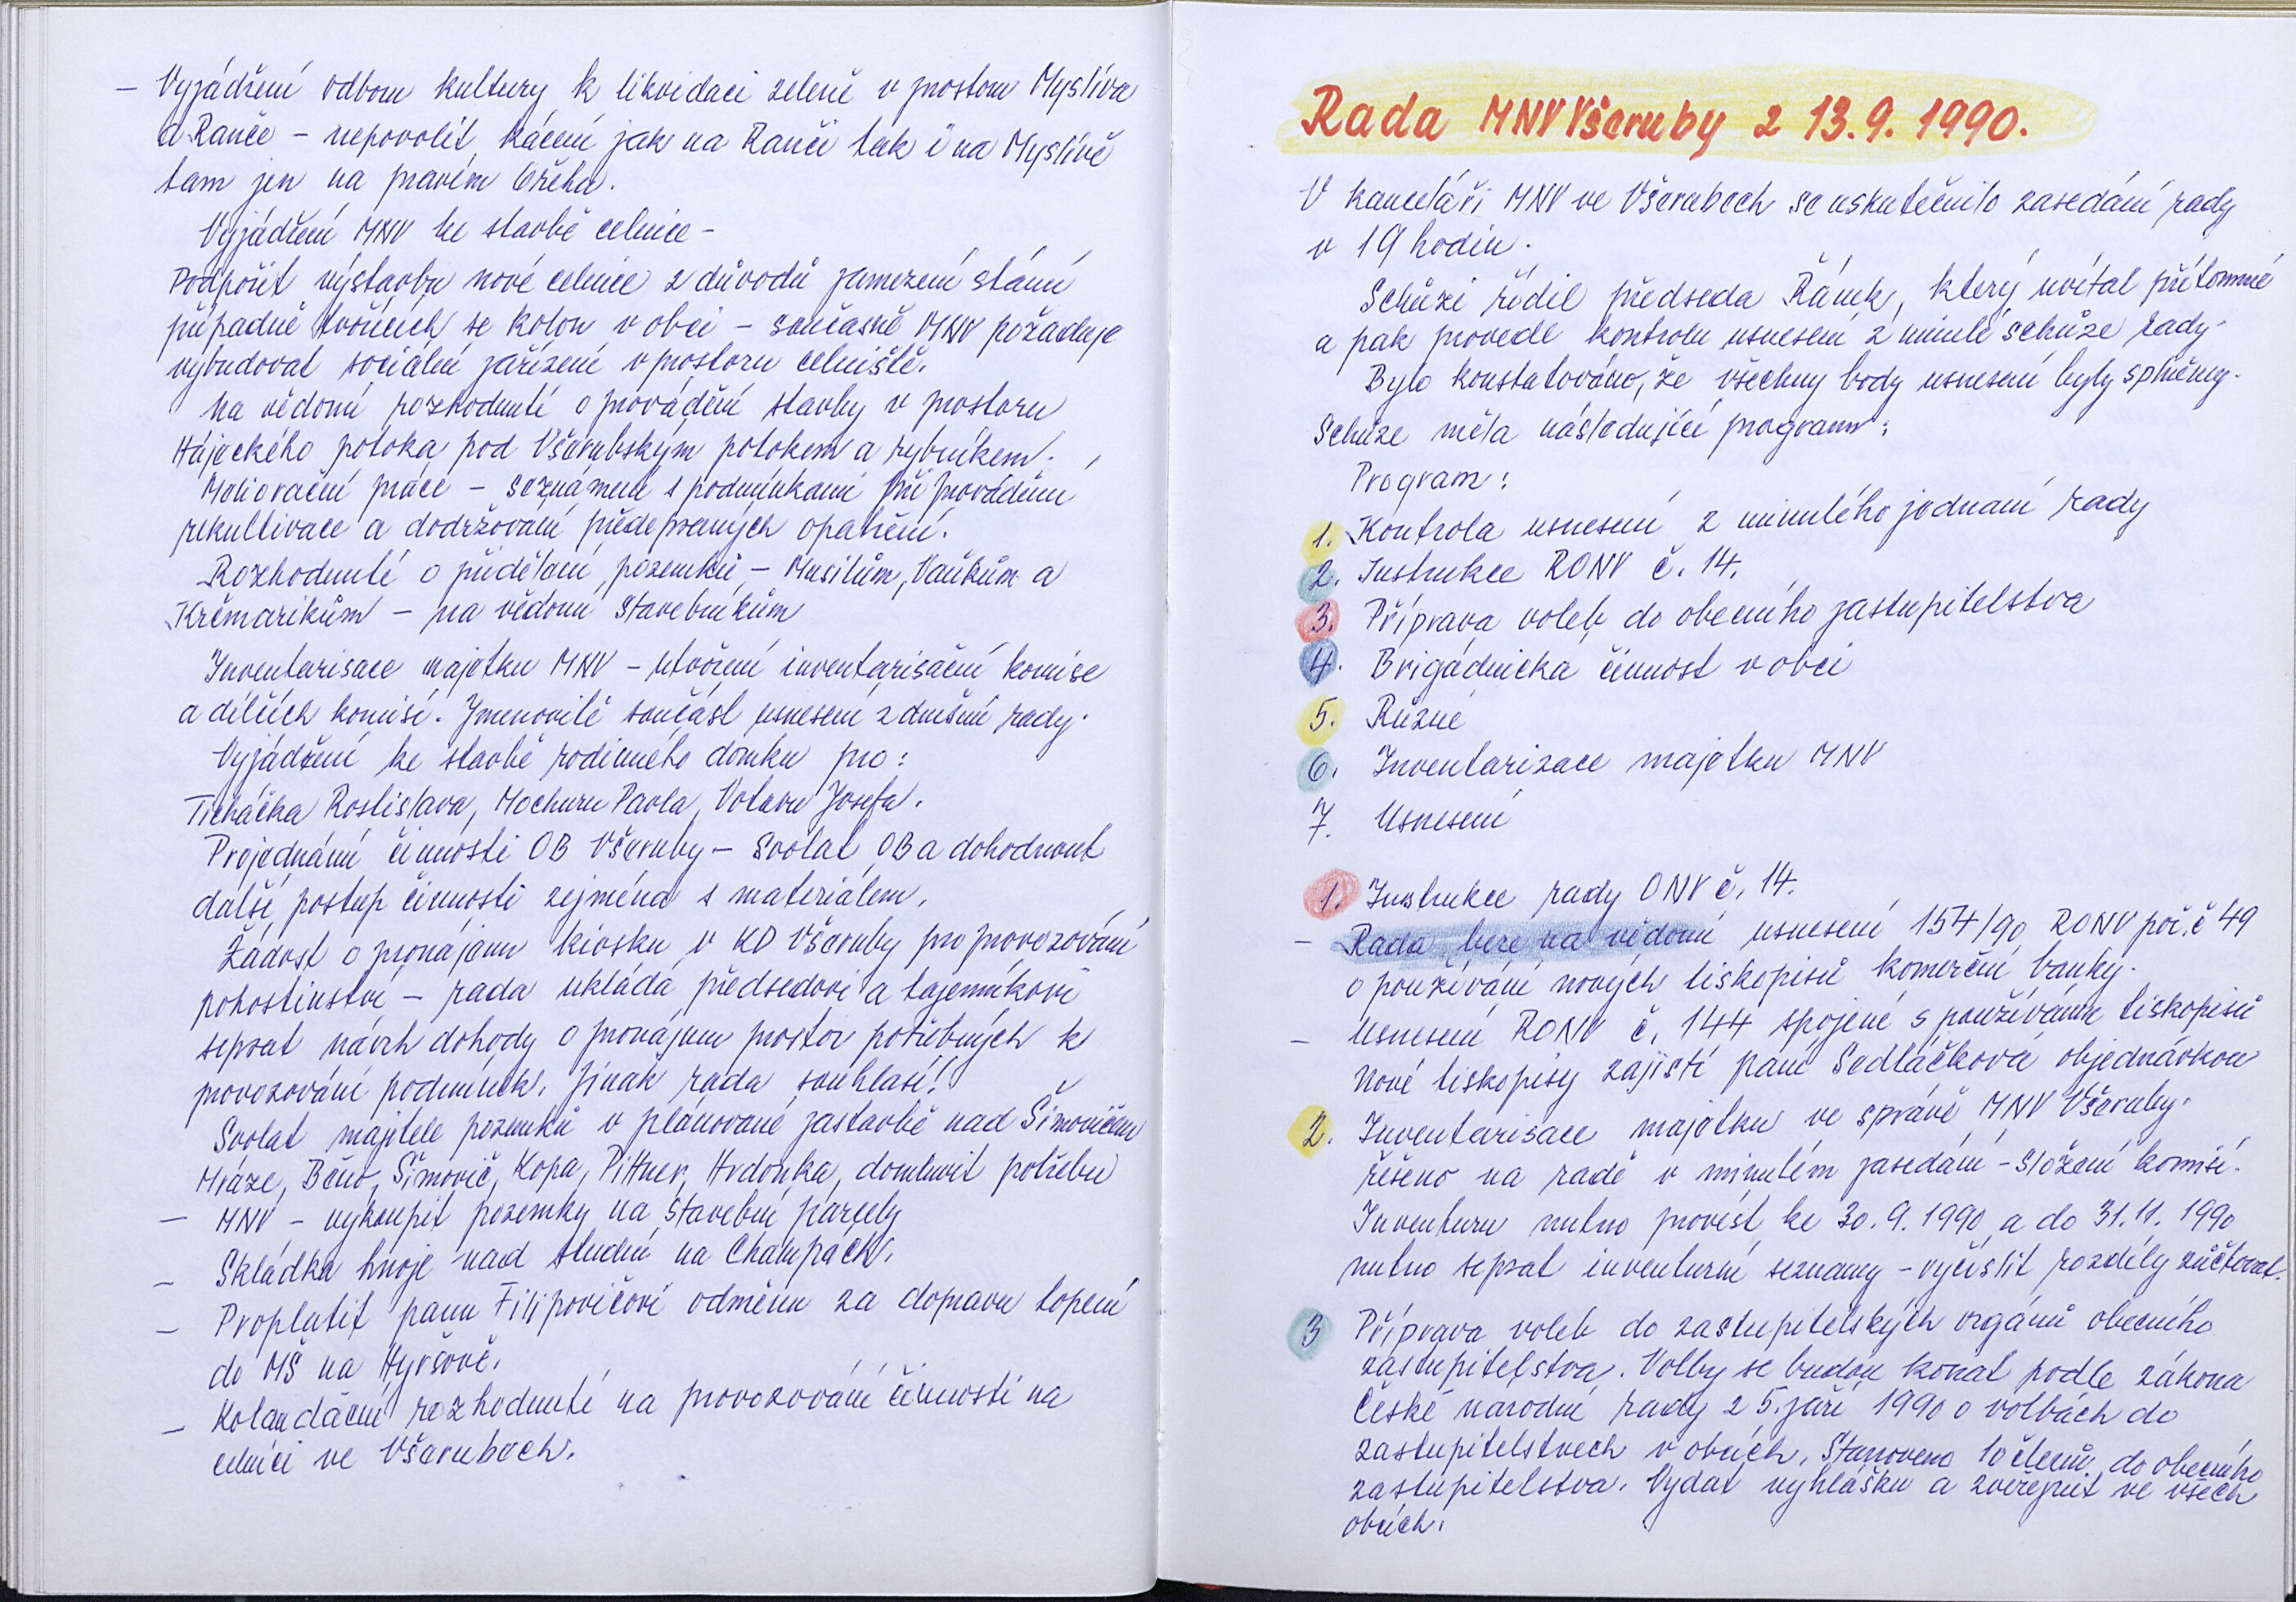 – Vyjádření odboru kultury k likvidaci zeleně v prostoru Myslíva
a Ranče – nepovolit kácení jak na Ranči tak i na Myslívě
tam jen na pravém břehu.
Vyjádření MNV ke stavbě celnice –
Podpořit výstavbu nové celnice z důvodů zamezení stání
případně tvořících se kolon v obci – současně MNV požaduje
vybudovat sociální zařízení v prostoru celniště.
Na vědomí rozhodnutí o provádění stavby v prostoru
Hájeckého potoka pod Všerubským potokem a rybníkem.
Meliorační práce – seznámení s podmínkami při provádění
rekultivace a dodržování předepsaných opatření.
Rozhodnutí o přidělení pozemků – Musilům, Vaňkům a
Krčmarikům – na vědomí stavebníkům
Inventarisace majetku MNV – utvoření inventarisační komise
a dílčích komisí. Jmenovitě součást usnesení z dnešní rady.
Vyjádření ke stavbě rodinného domku pro:
Ticháčka Rostislava, Mochuru Pavla, Votavu Josefa.
Projednání činnosti OB Všeruby – svolat OB a dohodnout
další postup činnosti zejména s materiálem.
Žádost o pronájem kiosku v KD Všeruby pro provozování
pohostinství – rada ukládá předsedovi a tajemníkovi
sepsat návrh dohody o pronájmu prostor potřebných k
provozování podmínek. Jinak rada souhlasí!
Svolat majitele pozemků v plánované zástavbě nad Šimovičem
Mráze, Beňo, Šimovič, Kopa, Pittner, Hrdonka, domluvit potřebu
– MNV – vykoupit pozemky na stavební parcely
– Skládka hnoje nad studní na Chalupách.
– Proplatit panu Filipovičovi odměnu za dopravu topení
do MŠ na Hyršově.
– Kolaudační rozhodnutí na provozování činnosti na
celnici ve Všerubech.
Rada MNV Všeruby z 13.9. 1990.
V kanceláři MNV ve Všerubech se uskutečnilo zasedání rady
v 19 hodin.
Schůzi řídil předseda Řánek, který uvítal přítomné
a pak provedl kontrolu usnesení z minulé schůze rady.
Bylo konstatováno, že všechny body usnesení byly splněny.
Schůze měla následující program:
Program:
1. Kontrola usnesení z minulého jednání rady
2. Instrukce RONV č. 14.
3. Příprava voleb do obecního zastupitelstva
4. Brigádnická činnost v obci
5. Různé
6. Inventarizace majetku MNV
7. Usnesení
1. Instrukce rady ONV č. 14.
– Rada bere na vědomí usnesení 154/90 RONV poř. č 49
o používání nových tiskopisů komerční banky.
– Usnesení RONV č. 144 spojené s používáním tiskopisů
Nové tiskopisy zajistí paní Sedláčková objednávkou
2. Inventarisace majetku ve správě MNV Všeruby.
řešeno na radě v minulém zasedání – složení komisí.
Inventuru nutno provést ke 30.9. 1990 a do 31. 11. 1990
nutno sepsat inventurní seznamy – vyčíslit rozdíly zúčtovat.
3 Příprava voleb do zastupitelských orgánů obecního
zastupitelstva. Volby se budou konat podle zákona
České národní rady z 5. září 1990 o volbách do
zastupitelstvech v obcích. Stanoveno 10 členů do obecního
zastupitelstva. Vydat vyhlášku a zveřejnit ve všech
obcích.